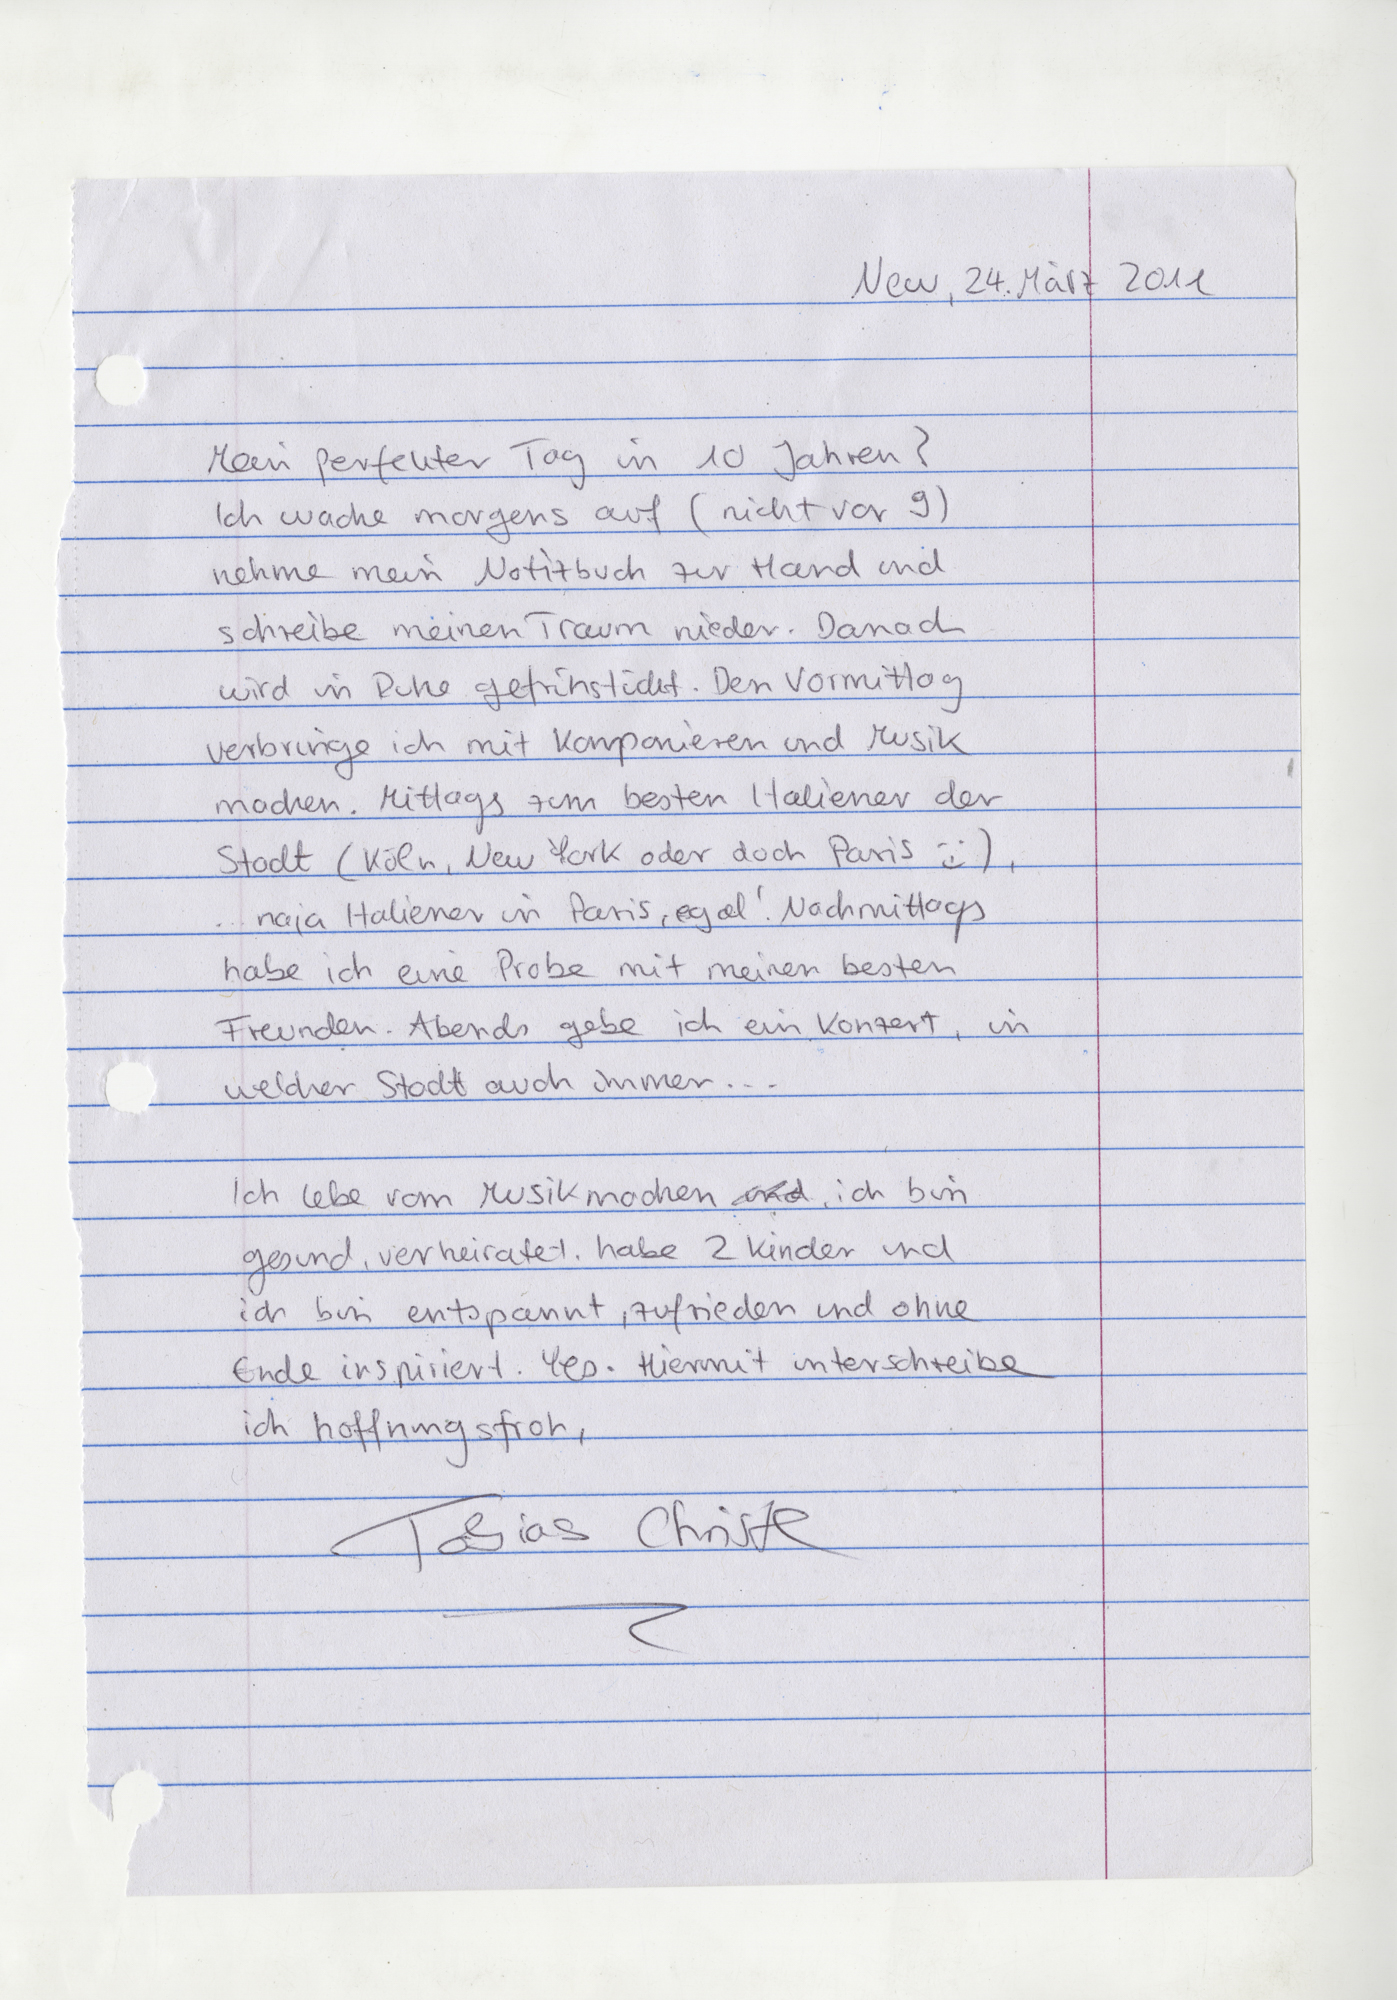 New, 24. März 2011
Mein perfekter Tag in 10 Jahren?
Ich wache morgens auf (nicht vor 9)
nehme mein Notizbuch zur Hand und
schreibe meinen Traum nieder. Danach
wird in Ruhe gefrühstückt. Den Vormittag
verbringe ich mit Komponieren und Musik
machen. Mittags zum besten Italiener der
Stadt (Köln, New York oder doch Paris :),
... naja Italiener in Paris, egal! Nachmittags
habe ich eine Probe mit meinen besten
Freunden. Abends gebe ich ein Konzert, in
welcher Stadt auch immer...
Ich lebe vom Musikmachen und, ich bin
gesund, verheiratet. habe 2 Kinder und
ich bin entspannt, zufrieden und ohne
Ende inspiriert. Yes. Hiermit unterschreibe
ich hoffnungsfroh,
Tobias Christl